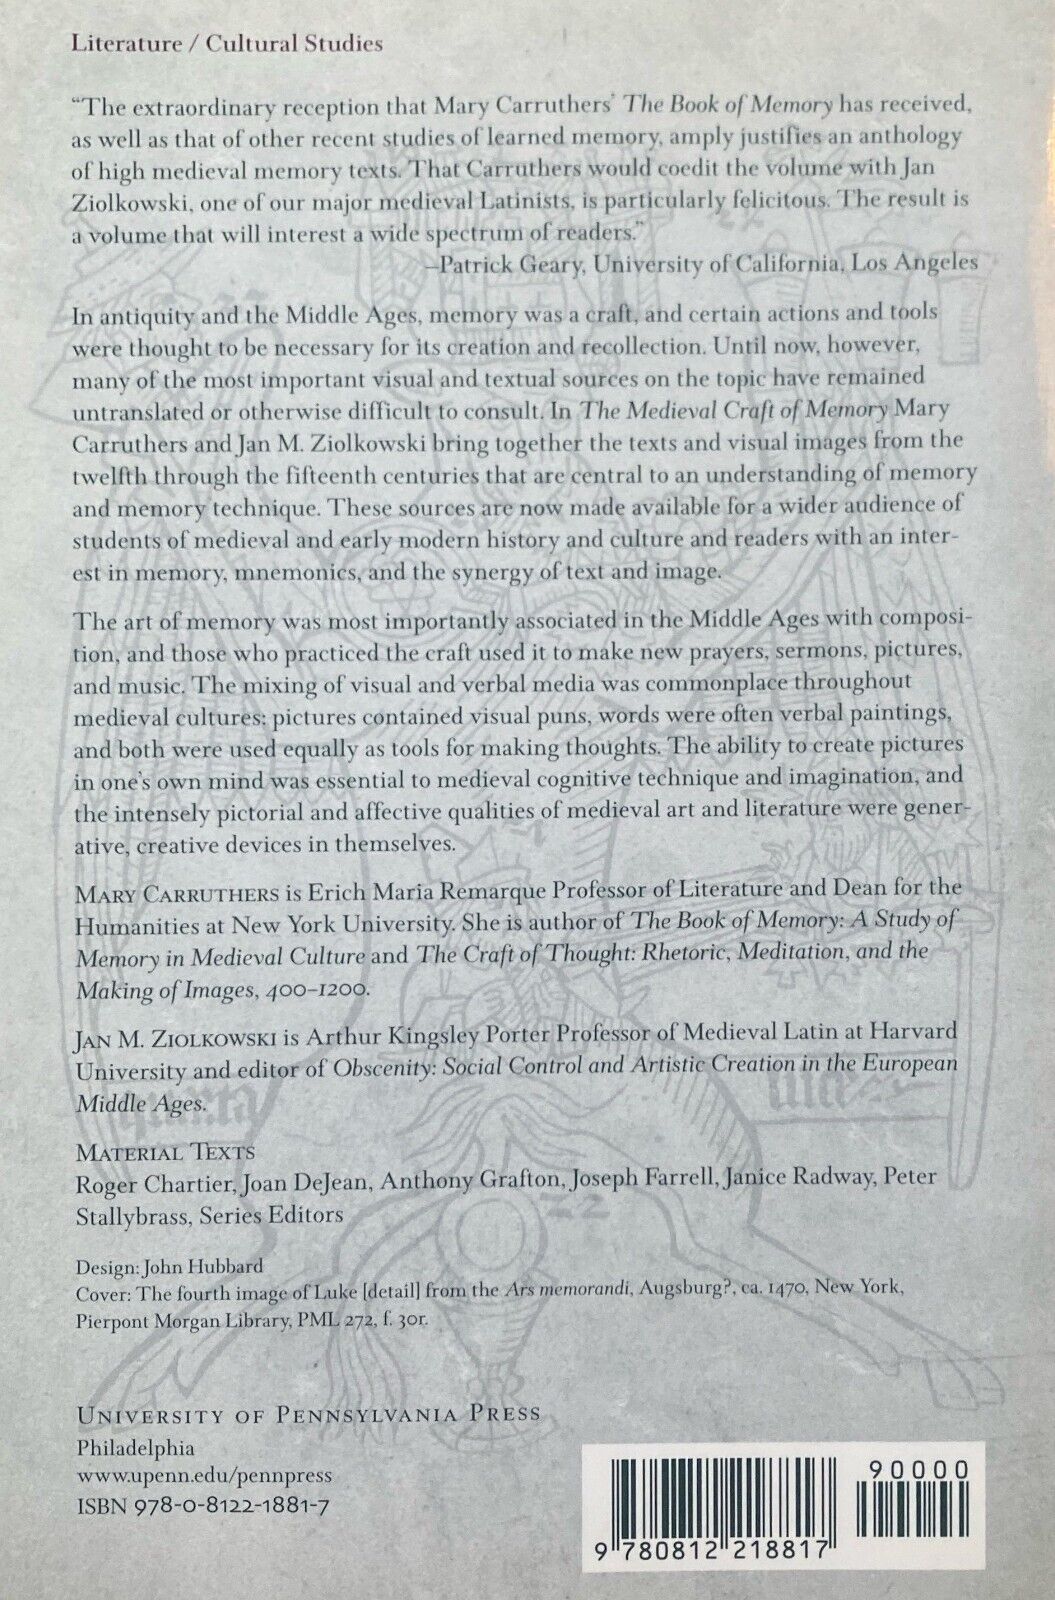 Literature / Cultural Studies
“The extraordinary reception that Mary Carruthers’ The Book of Memory has received,
as well as that of other recent studies of learned memory, amply justifies an anthology
of high medieval memory texts. That Carruthers would coedit the volume with Jan
Ziolkowski, one of our major medieval Latinists, is particularly felicitous. The result is
a volume that will interest a wide spectrum of readers.”
—Patrick Geary, University of California, Los Angeles
In antiquity and the Middle Ages, memory was a craft, and certain actions and tools
were thought to be necessary for its creation and recollection. Until now, however,
many of the most important visual and textual sources on the topic have remained
untranslated or otherwise difficult to consult. In The Medieval Craft of Memory Mary
Carruthers and Jan M. Ziolkowski bring together the texts and visual images from the
twelfth through the fifteenth centuries that are central to an understanding of memory
and memory technique. These sources are now made available for a wider audience of
students of medieval and early modern history and culture and readers with an inter-
est in memory, mnemonics, and the synergy of text and image.
The art of memory was most importantly associated in the Middle Ages with composi-
tion, and those who practiced the craft used it to make new prayers, sermons, pictures,
and music. The mixing of visual and verbal media was commonplace throughout
medieval cultures: pictures contained visual puns, words were often verbal paintings,
and both were used equally as tools for making thoughts. The ability to create pictures
in one’s own mind was essential to medieval cognitive technique and imagination, and
the intensely pictorial and affective qualities of medieval art and literature were gener-
ative, creative devices in themselves.
MARY CARRUTHERS is Erich Maria Remarque Professor of Literature and Dean for the
Humanities at New York University. She is author of The Book of Memory: A Study of
Memory in Medieval Culture and The Craft of Thought: Rhetoric, Meditation, and the
Making of Images, 400–1200.
JAN M. ZIOLKOWSKI is Arthur Kingsley Porter Professor of Medieval Latin at Harvard
University and editor of Obscenity: Social Control and Artistic Creation in the European
Middle Ages.
MATERIAL TEXTS
Roger Chartier, Joan DeJean, Anthony Grafton, Joseph Farrell, Janice Radway, Peter
Stallybrass, Series Editors
Design: John Hubbard
Cover: The fourth image of Luke [detail] from the Ars memorandi, Augsburg?, ca. 1470, New York,
Pierpont Morgan Library, PML 272, f. 30r.
UNIVERSITY OF PENNSYLVANIA PRESS
Philadelphia
www.upenn.edu/pennpress
ISBN 978-0-8122-1881-7
90000
9 780812 218817